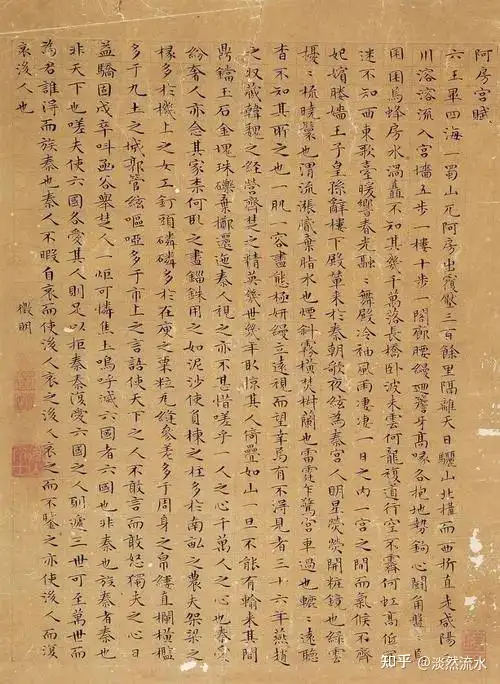 阿房宮賦
六王畢四海一蜀山兀阿房出覆壓三百餘里隔離天日驪山北構而西折直走咸陽二
川溶溶流入宮墻五步一樓十步一閣廊腰縵迴簷牙高啄各抱地勢鉤心鬬角盤〻焉
囷囷焉蜂房水渦矗不知其幾千萬落長橋臥波未雲何龍複道行空不霽何虹高低冥
迷不知西東歌臺暖響春光融〻舞殿冷袖風雨凄凄一日之內一宮之間而氣候不齊
妃嬪媵嬙王子皇孫辭樓下殿輦來於秦朝歌夜絃為秦宮人明星熒熒開粧鏡也綠雲
擾〻梳曉鬟也渭流漲膩棄脂水也煙斜霧橫焚椒蘭也雷霆乍驚宮車過也轆〻遠聽
杳不知其所之也一肌一容盡態極妍縵立遠視而望幸焉有不得見者三十六年燕趙
之收藏韓魏之經營齊楚之精英幾世幾年取掠其人倚疊如山一旦不能有輸來其間
鼎鐺玉石金塊珠礫棄擲邐迤秦人視之亦不甚惜嗟乎一人之心千萬人之心也秦愛
紛奢人亦念其家柰何取之盡錙銖用之如泥沙使負棟之柱多於南畝之農夫架梁之
椽多於機上之女工釘頭磷磷多於在庾之粟粒瓦縫參差多于周身之帛縷直欄橫檻
多于九土之城郭管絃嘔啞多于市上之言語使天下之人不敢言而敢怒獨夫之心日
益驕固戍卒叫函谷舉楚人一炬可憐焦土嗚呼滅六國者六國也非秦也族秦者秦也
非天下也嗟夫使六國各愛其人則足以拒秦秦復愛六國之人則遞三世可至萬世而
為君誰得而族秦也秦人不暇自哀而使後人哀之後人哀之而不鑒之亦使後人而復
哀後人也
徵明
知乎 @淡然流水